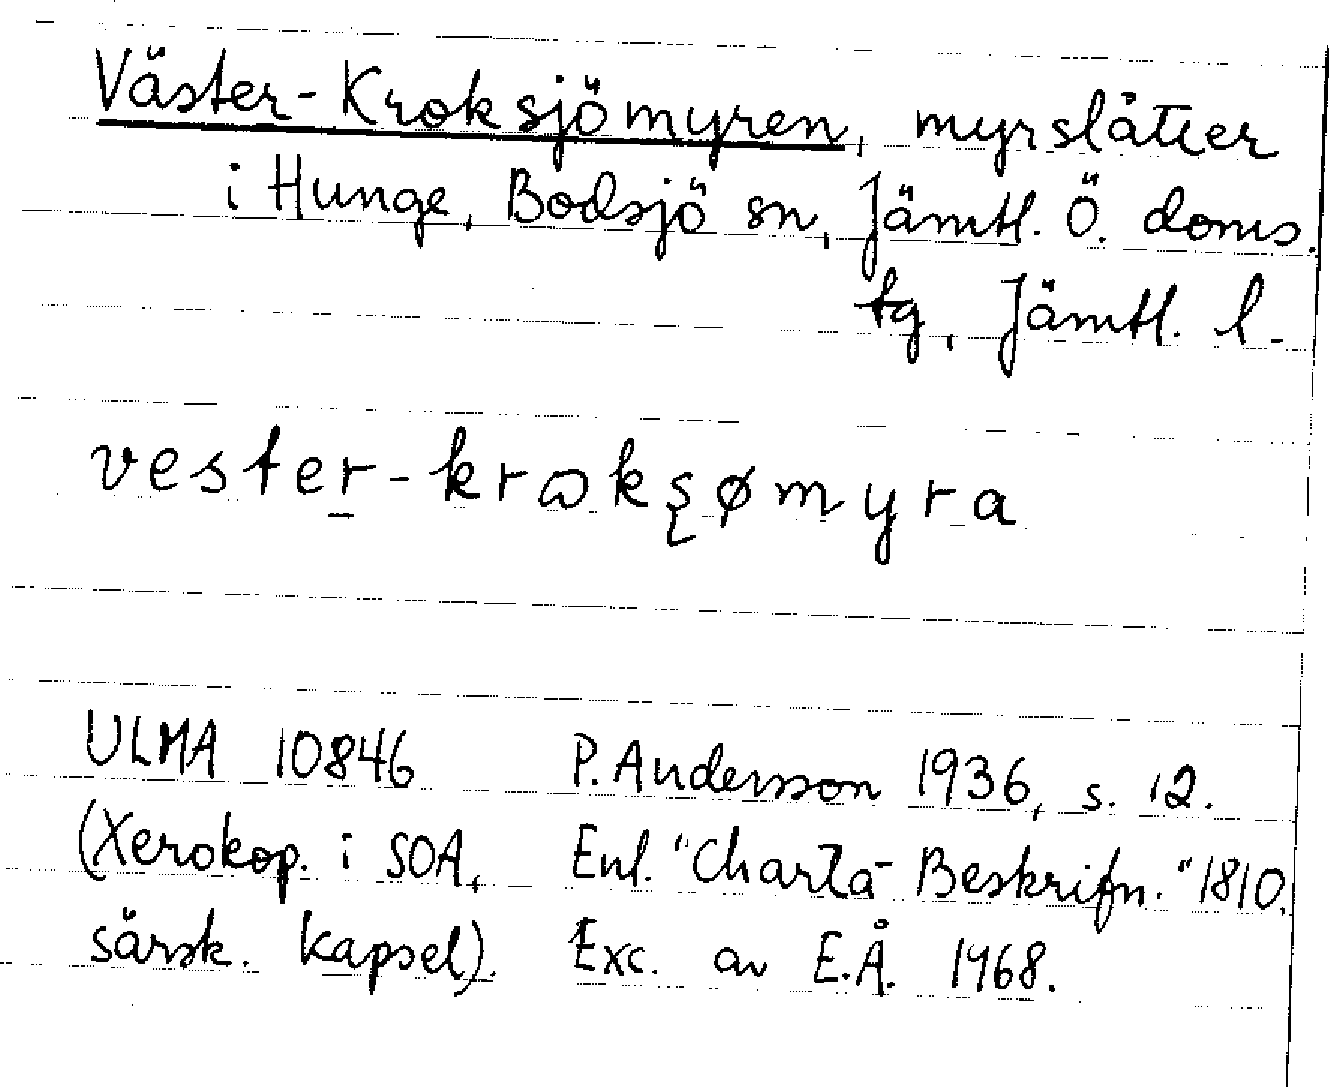 Väster-Kroksjömyren, myrslåtter
i Hunge, Bodsjö sn, Jämtl. Ö. doms.
tg, Jämtl. l.
vester-krɷkʂømyra
ULMA 10846 P. Andersson 1936, s. 12.
(Xerokop. i SOA, Enl. "Charta-Beskrifn." 1810.
särsk. kapsel). Exc. av E.Å. 1968.